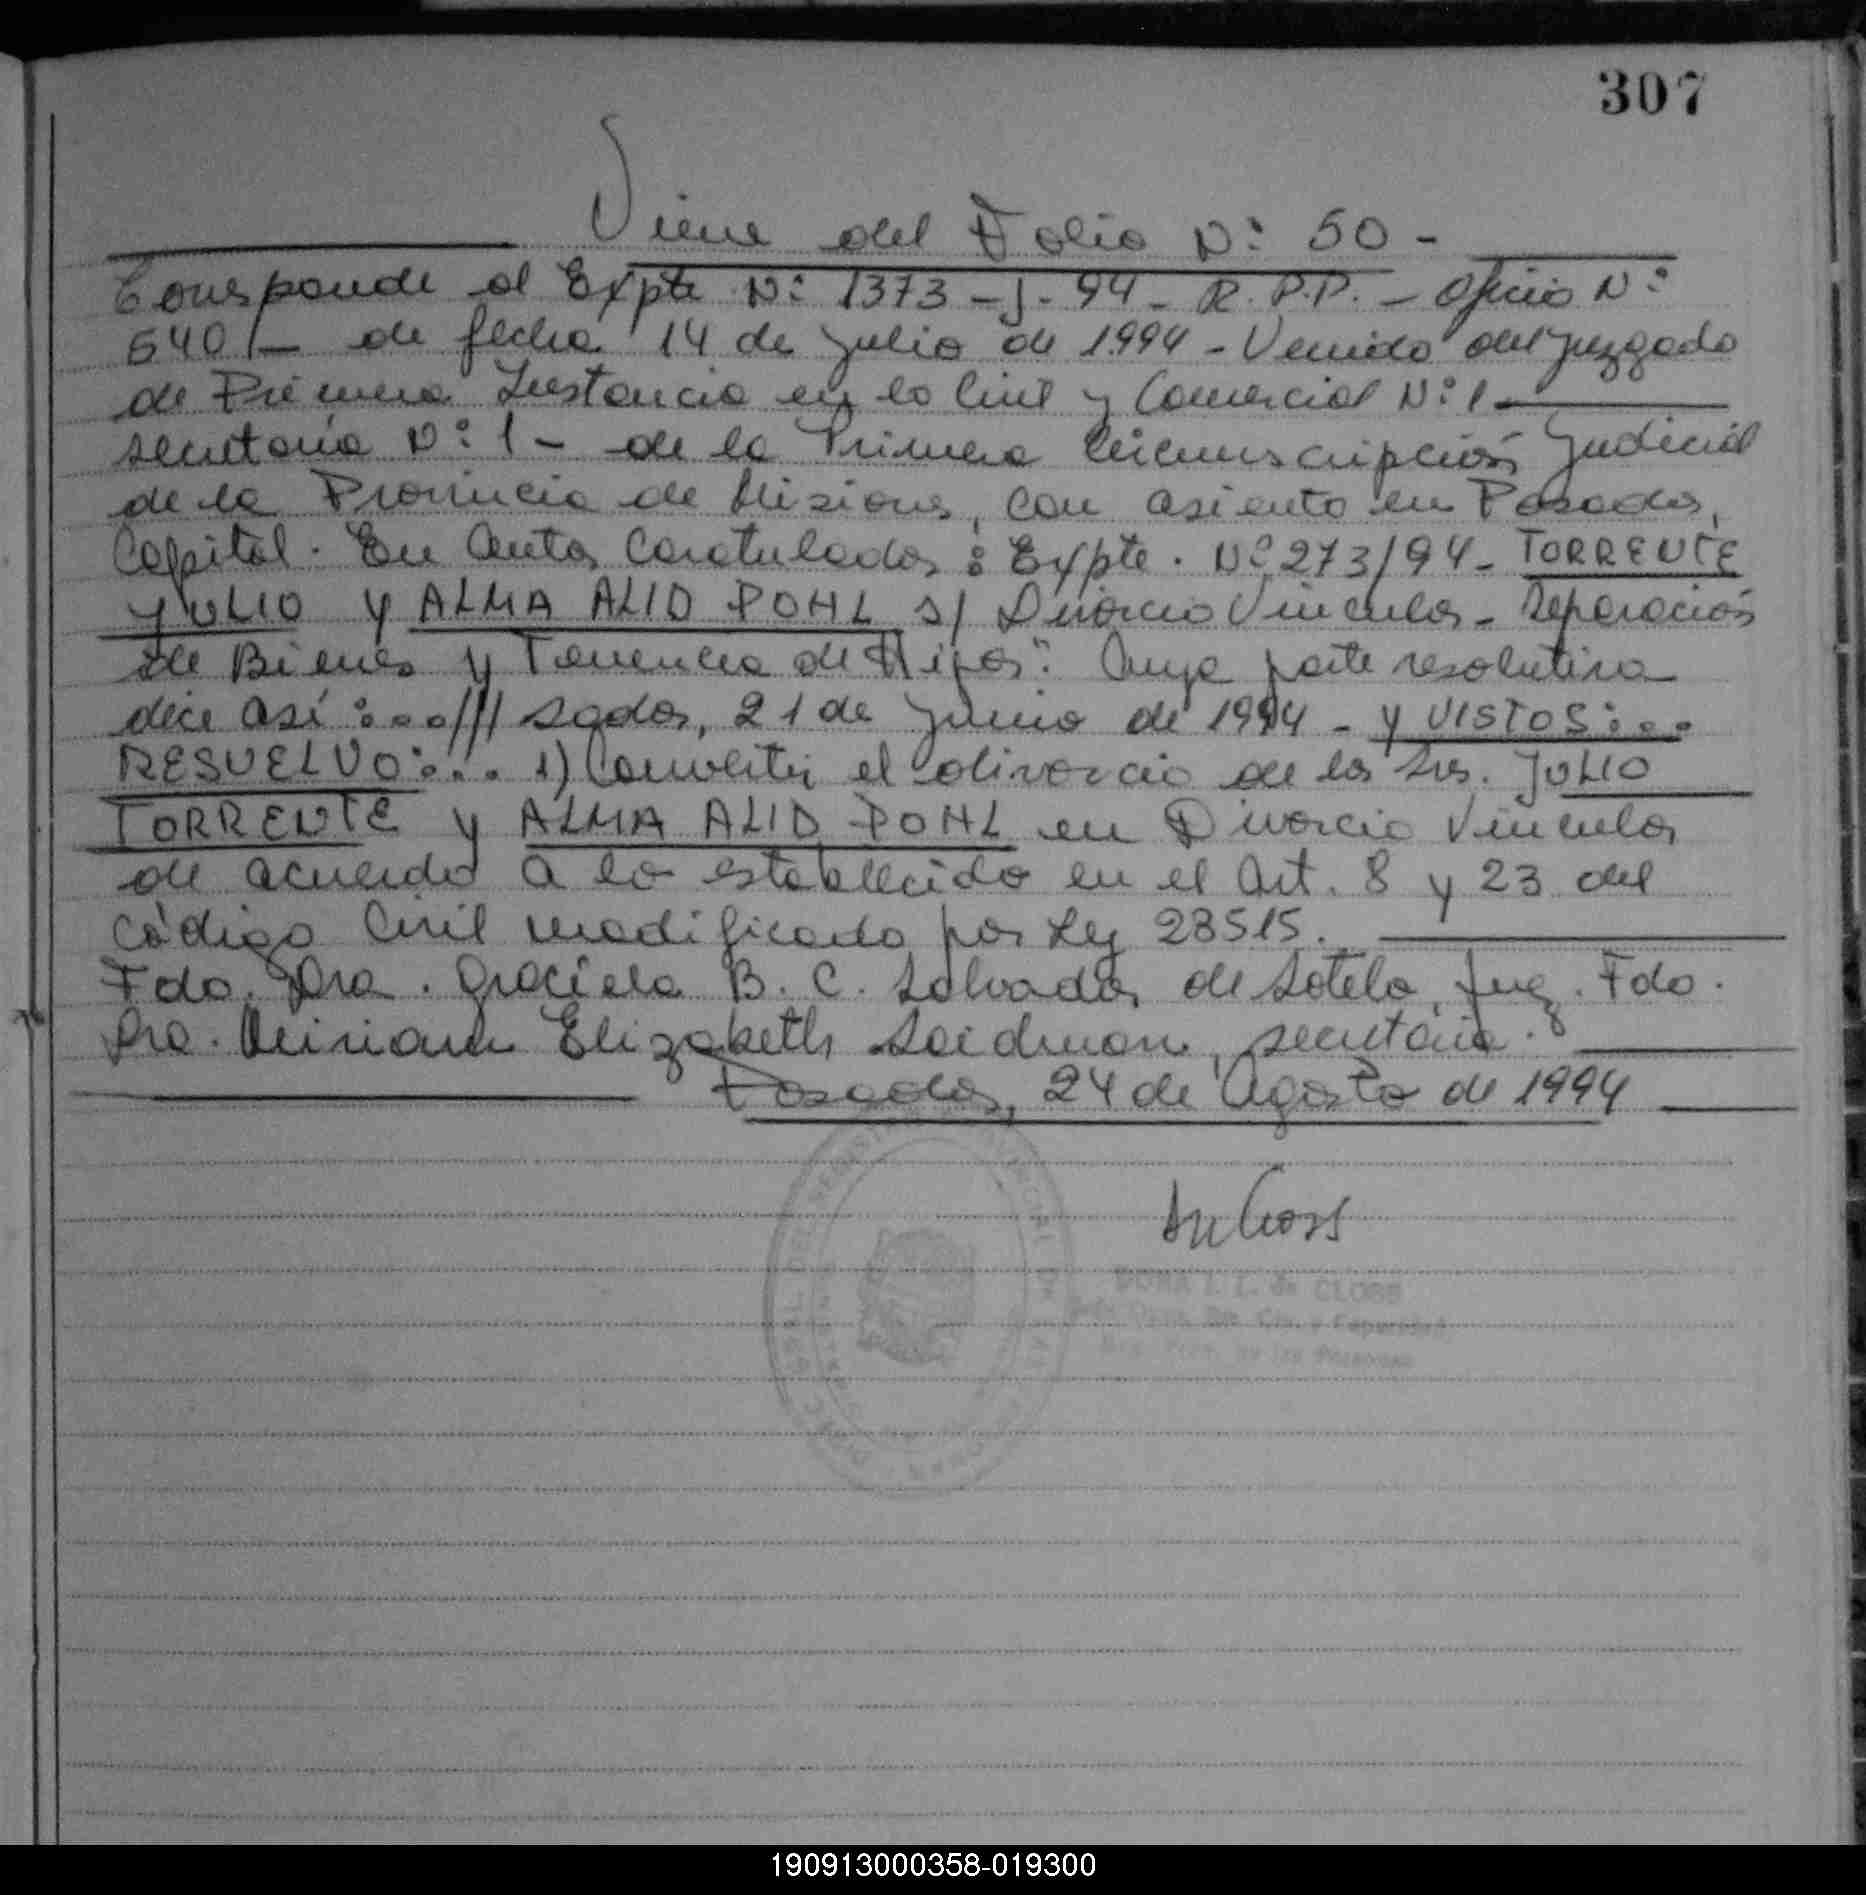 307
Viene del Folio Nº 50 -
Corresponde al Expte Nº 1373 - J - 94 - R.P.P. - Oficio Nº
540/- de fecha 14 de julio de 1994 - Venido del Juzgado
de Primera Instancia en lo Civil y Comercial Nº 1
secretaría Nº 1 - de la Primera Circunscripción Judicial
de la Provincia de Misiones, con asiento en Posadas,
Capital. En Autos Caratulados: Expte. Nº 273/94 - TORRENTE
JULIO y ALMA ALID POHL s/ Divorcio Vincular - Separación
de Bienes y Tenencia de Hijos". Cuya parte resolutiva
dice así:...///sadas, 21 de junio de 1994 - y VISTOS:...
RESUELVO:... 1) Convertir el divorcio de los Sres. JULIO
TORRENTE y ALMA ALID POHL en Divorcio Vincular
de acuerdo a lo establecido en el Art. 8 y 23 del
Código Civil modificado por Ley 23515.
Fdo. Dra. Graciela B. C. Salvador de Sotelo, Juez. Fdo.
Dra. Miriam Elizabeth Saidman, secretaria.
Posadas, 24 de Agosto de 1994
I. de CLOSS
190913000358-019300